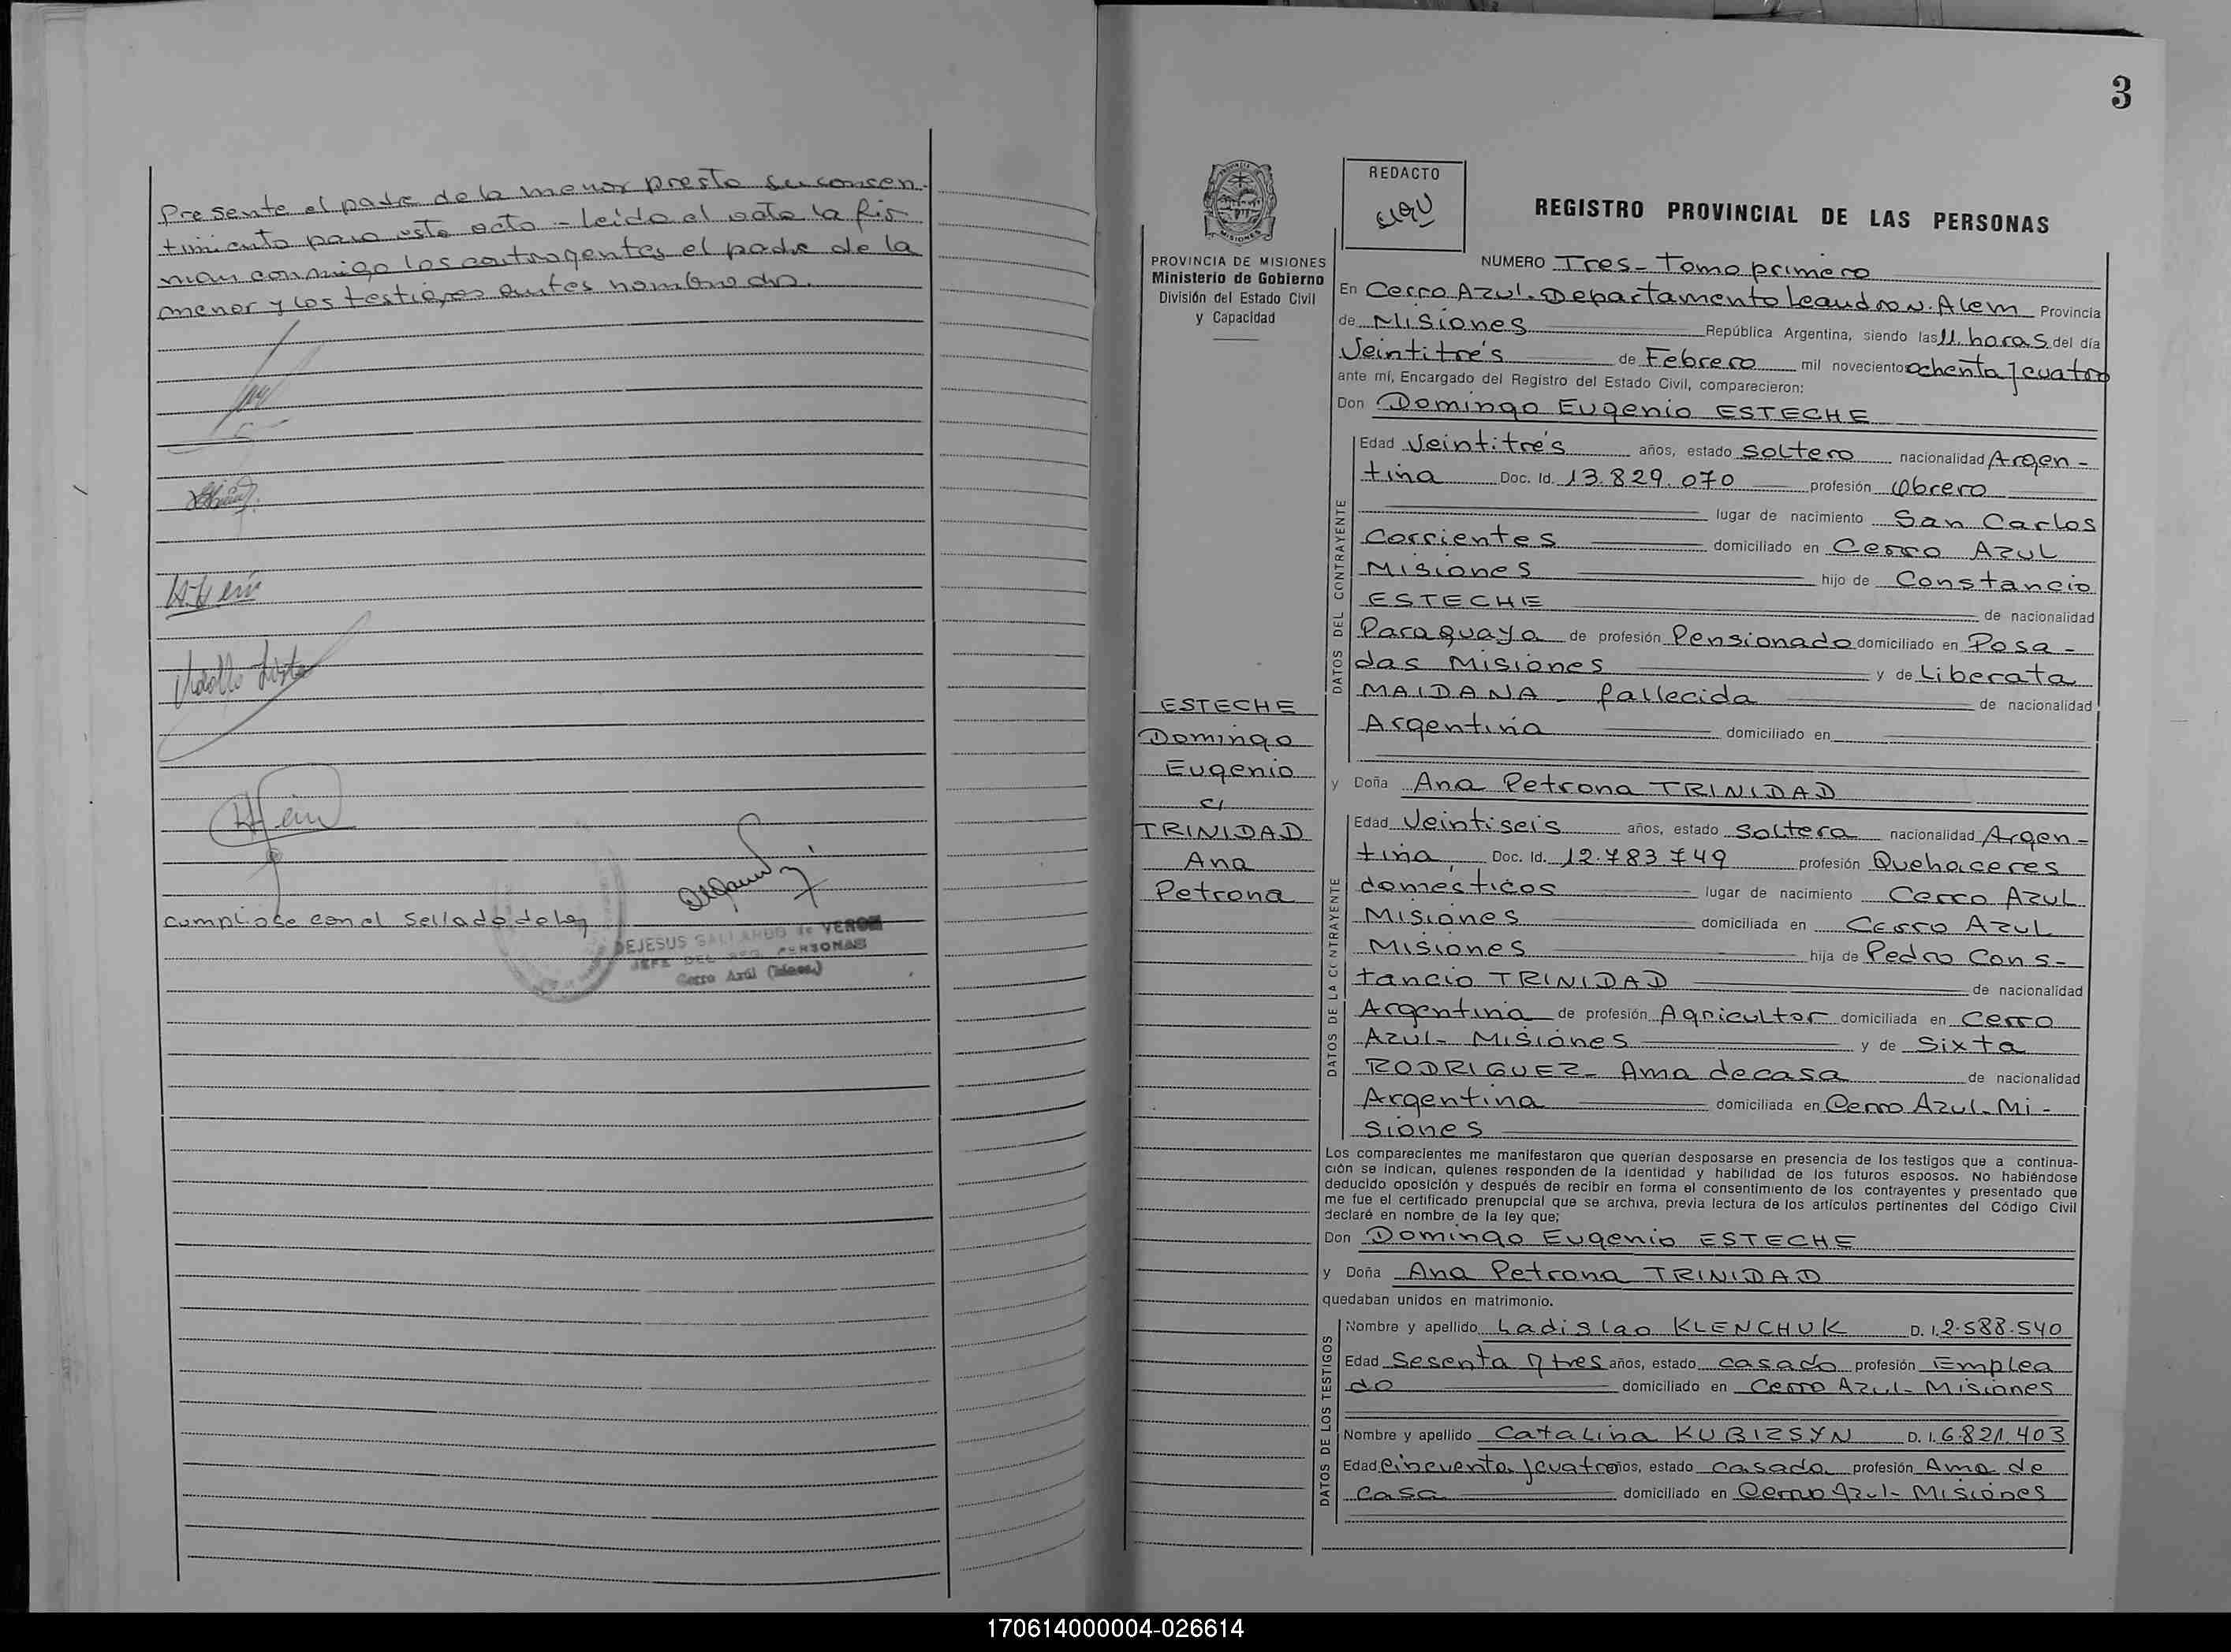 Presente el padre de la menor presta su consen-
timiento para este acto - Leida el acta la fir
man conmigo los contrayentes el padre de la
menor y los testigos antes nombrado.
Cumpliose con el Sellado de Ley
DEJESUS GALLARDO de VERON
JEFE DEL REG. PERSONAS
Cerro Azúl (Mnes.)
3
PROVINCIA DE MISIONES
Ministerio de Gobierno
División del Estado Civil
y Capacidad
REDACTO
REGISTRO PROVINCIAL DE LAS PERSONAS
NUMERO Tres - Tomo primero
En Cerro Azul. Departamento Leandro N. Alem Provincia
de Misiones República Argentina, siendo las 11 horas del día
Veintitrés de Febrero mil novecientos ochenta y cuatro
ante mí, Encargado del Registro del Estado Civil, comparecieron:
Don Domingo Eugenio ESTECHE
DATOS DEL CONTRAYENTE
Edad Veintitrés años, estado Soltero nacionalidad Argen-
tina Doc. Id. 13.829.070 profesión Obrero
lugar de nacimiento San Carlos
Corrientes domiciliado en Cerro Azul
Misiones hijo de Constancio
ESTECHE de nacionalidad
Paraguaya de profesión Pensionado domiciliado en Posa-
das Misiones y de Liberata
MAIDANA - fallecida de nacionalidad
Argentina domiciliado en
ESTECHE
Domingo
Eugenio
c/
TRINIDAD
Ana
Petrona
y Doña Ana Petrona TRINIDAD
DATOS DE LA CONTRAYENTE
Edad Veintiseis años, estado Soltera nacionalidad Argen-
tina Doc. Id. 12.783.749 profesión Quehaceres
domésticos lugar de nacimiento Cerro Azul
Misiones domiciliada en Cerro Azul
Misiones hija de Pedro Cons-
tancio TRINIDAD de nacionalidad
Argentina de profesión Agricultor domiciliada en Cerro
Azul - Misiones y de Sixta
RODRIGUEZ - Ama de casa de nacionalidad
Argentina domiciliada en Cerro Azul - Mi-
siones
Los comparecientes me manifestaron que querían desposarse en presencia de los testigos que a continua-
ción se indican, quienes responden de la identidad y habilidad de los futuros esposos. No habiéndose
deducido oposición y después de recibir en forma el consentimiento de los contrayentes y presentado que
me fue el certificado prenupcial que se archiva, previa lectura de los artículos pertinentes del Código Civil
declaré en nombre de la ley que;
Don Domingo Eugenio ESTECHE
y Doña Ana Petrona TRINIDAD
quedaban unidos en matrimonio.
DATOS DE LOS TESTIGOS
Nombre y apellido Ladislao KLENCHUK D. I. 2.588.540
Edad Sesenta y tres años, estado casado profesión Emplea
do domiciliado en Cerro Azul - Misiones
Nombre y apellido Catalina KUBIZSYN D. I. 6.821.403
Edad Cincuenta y cuatro años, estado casada profesión Ama de
casa domiciliado en Cerro Azul - Misiones
170614000004-026614